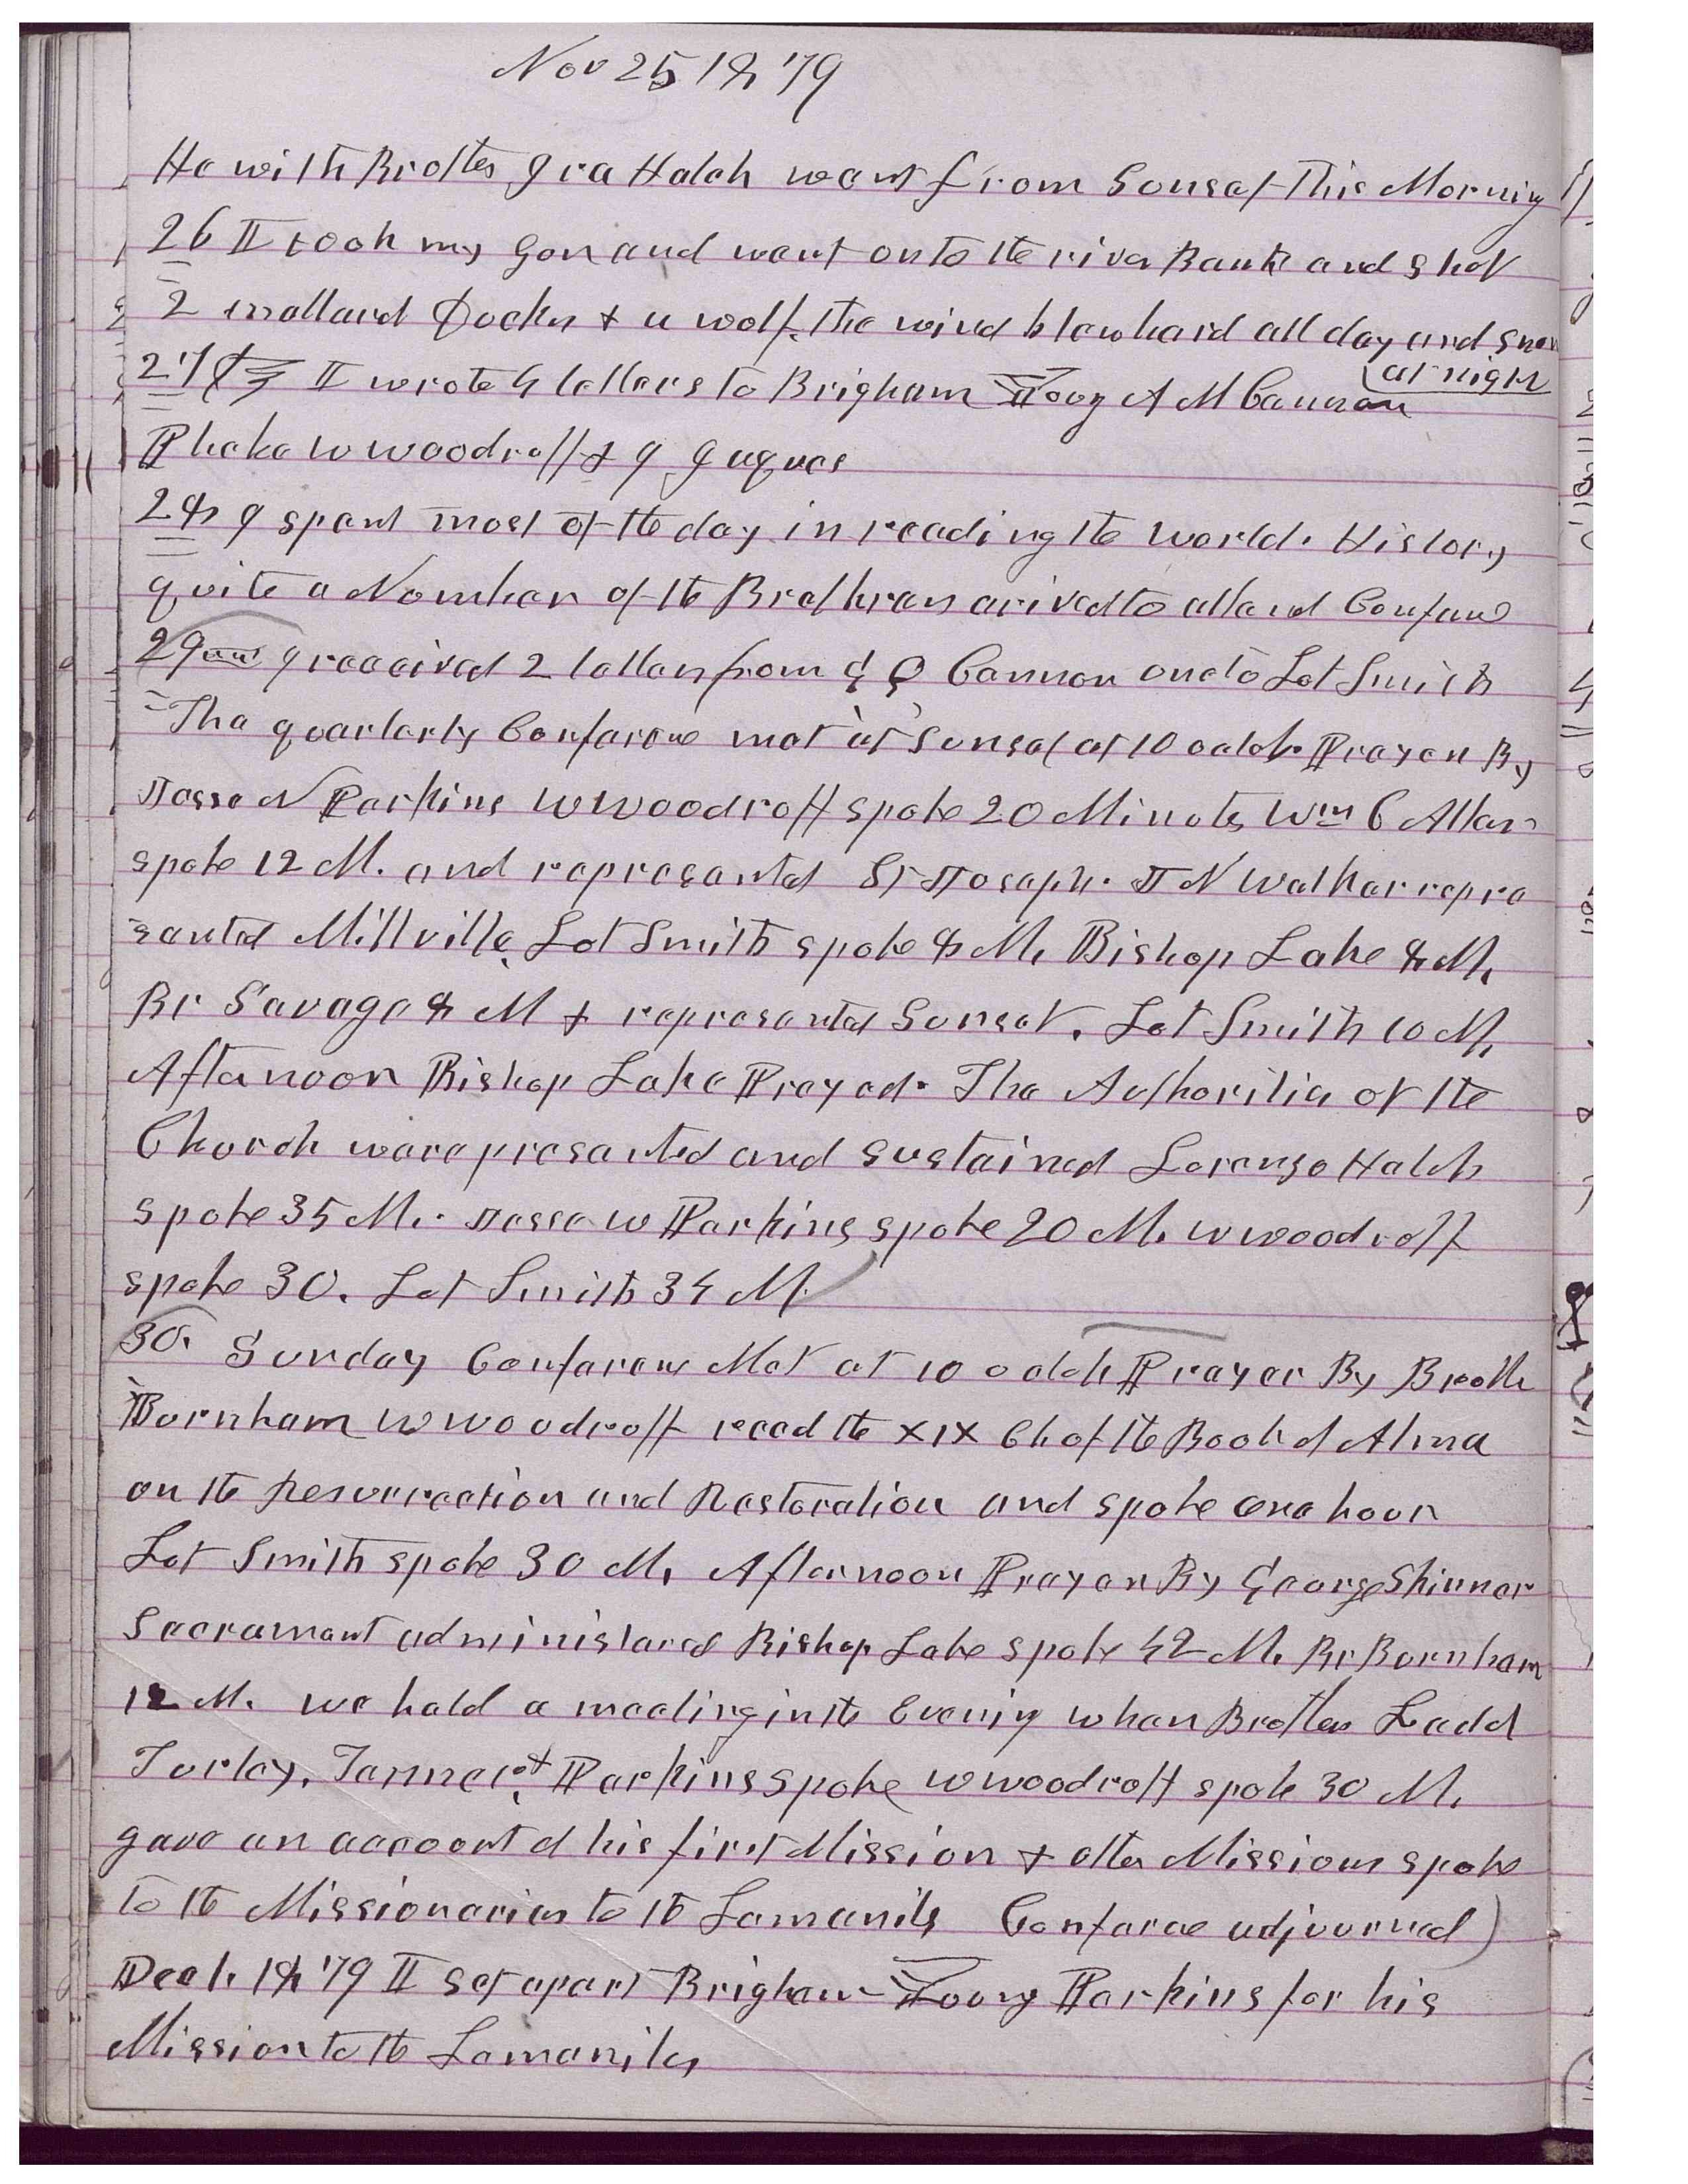 Nov 25 1879
He with Brother Ira Hatch went from Sunset this Morning
26 I took my gun and went onto the river Bank and shot
2 mallard Ducks & a wolf. The wind blew hard all day and snow
at night
27 I wrote 4 letters to Brigham Young A M Cannon
Phebe W Woodruff & I Jaques
28 I spent most of the day in reading the world. History
quite a Number of the Brethren arived to attend Conference
29 I received 2 letters from G Q Cannon one to Lot Smith
The quarterly Conference met at Sunset at 10 oclok. Prayer By
Jesse N Perkins W Woodruff spoke 20 Minutes Wm C Allen
spoke 12 M. and represented St Joseph. J N Walker repre
sented Millville. Lot Smith spoke 8 M. Bishop Lake 8 M.
Br Savage 8 M & represented Sunset. Lot Smith 10 M.
Afternoon Bishop Lake Prayed. The Authorities of the
Church were presented and sustained Lorenzo Hatch
spoke 35 M. Jesse W Perkins spoke 20 M. W Woodruff
spoke 30. Lot Smith 34 M.
30. Sunday Conference Met at 10 oclok Prayer By Broth
Burnham W Woodruff read the XIX Ch of the Book of Alma
on the Resurrection and Restoration and spoke one hour
Lot Smith spoke 30 M. Afternoon Prayer By George Skinner
Sacrament administered Bishop Lake spoke 42 M. Br Burnham
12 M. we held a meeting in the Evening when Brother Ladd
Turley, Tanner, & Perkins spoke W Woodruff spoke 30 M.
gave an account of his first Mission & other Missions spoke
to the Missionaries to the Lamanites Conference adjourned)
Dec 1. 1879 I set apart Brigham Young Perkins for his
Mission to the Lamanites